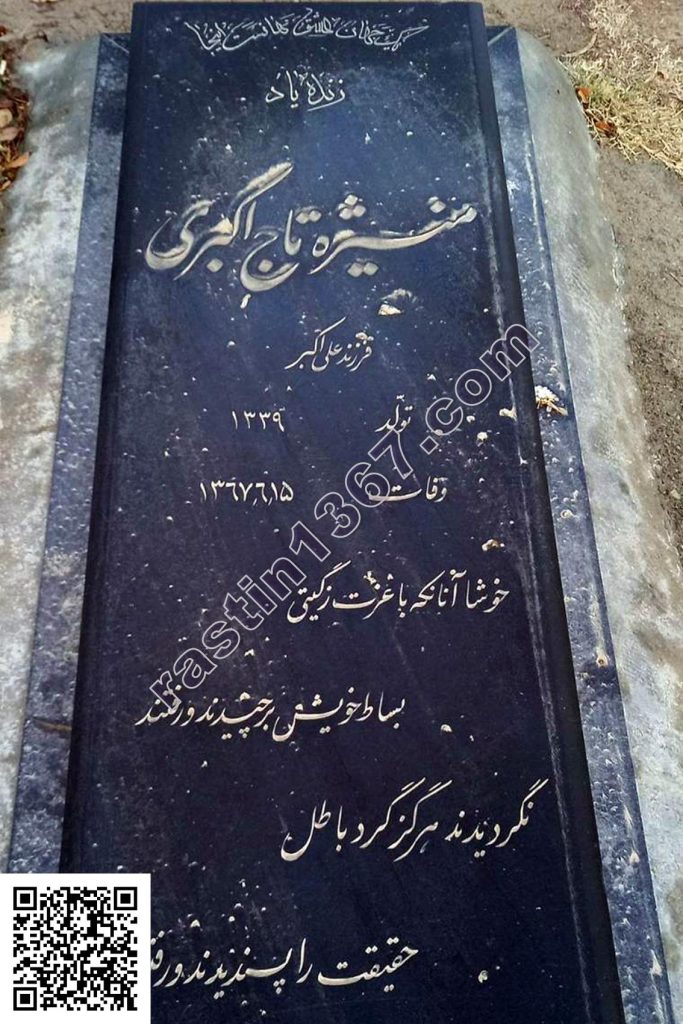 یک جهان عشق نهانست اینجا
زنده یاد
منیژه تاج اکبری
فرزند علی اکبر
تولد ۱۳۳۹
وفات ۱۳۶۷,۶,۱۵
خوشا آنانکه با عزت ز گیتی
بساط خویش برچیدند و رفتند
نگردیدند هرگز گرد باطل
حقیقت را پسندیدند و
rastin1367.com